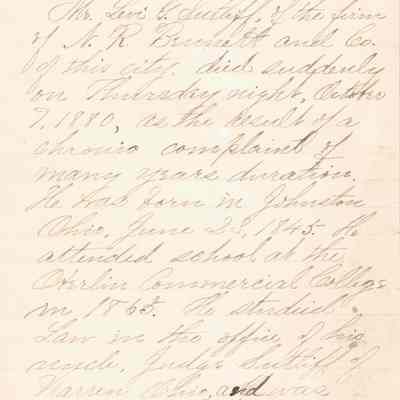 Mr. Levi G. Sutliff, of the firm
of N. R. Bennett and Co.
of this city died suddenly
on Thursday night, October
7, 1880, as the result of a
chronic complaint of
many years duration.
He was born in Johnston
Ohio, June 23, 1845. He
attended school at the
Oberlin Commercial College
in 1865. He studied
Law in the office of his
uncle, Judge Sutliff of
Warren Ohio, and was